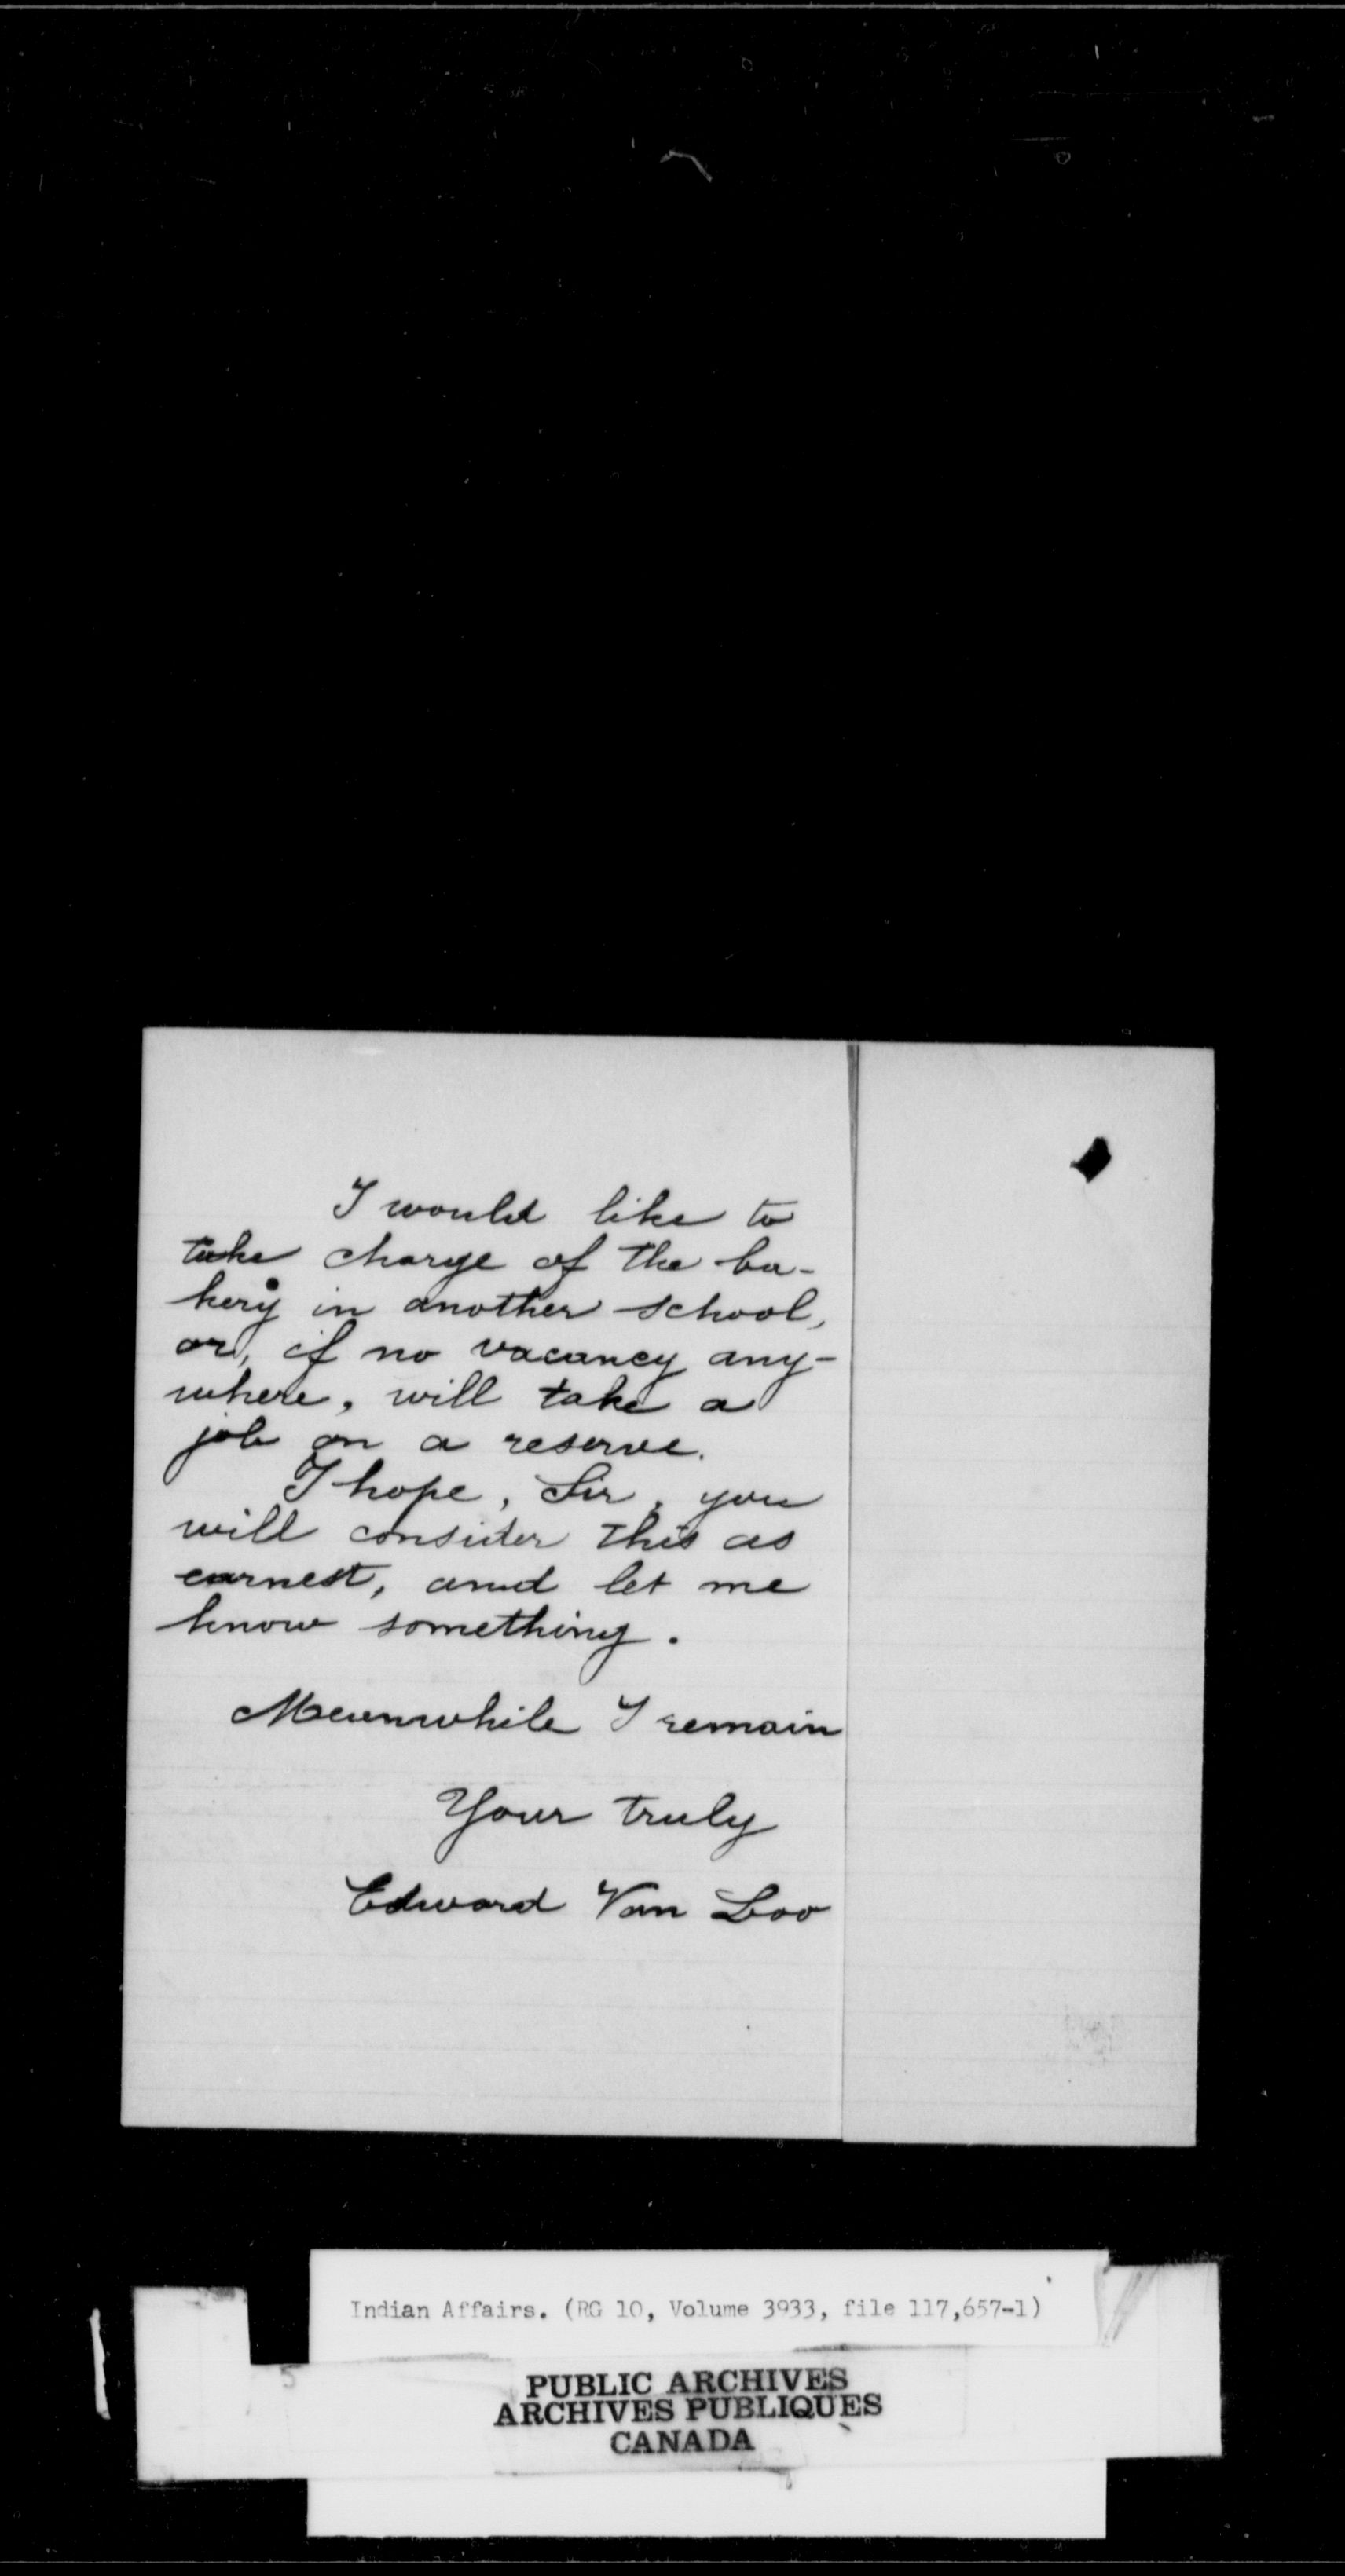 I would like to
take charge of the ba-
kery in another school,
or, if no vacancy any-
where, will take a
job on a reserve.
I hope, Sir, you
will consider this as
earnest, and let me
know something.
Meanwhile I remain
Your truly
Edward Van Loo
Indian Affairs. (RG 10, Volume 3933, file 117,657-1)
5
PUBLIC ARCHIVES
ARCHIVES PUBLIQUES
CANADA